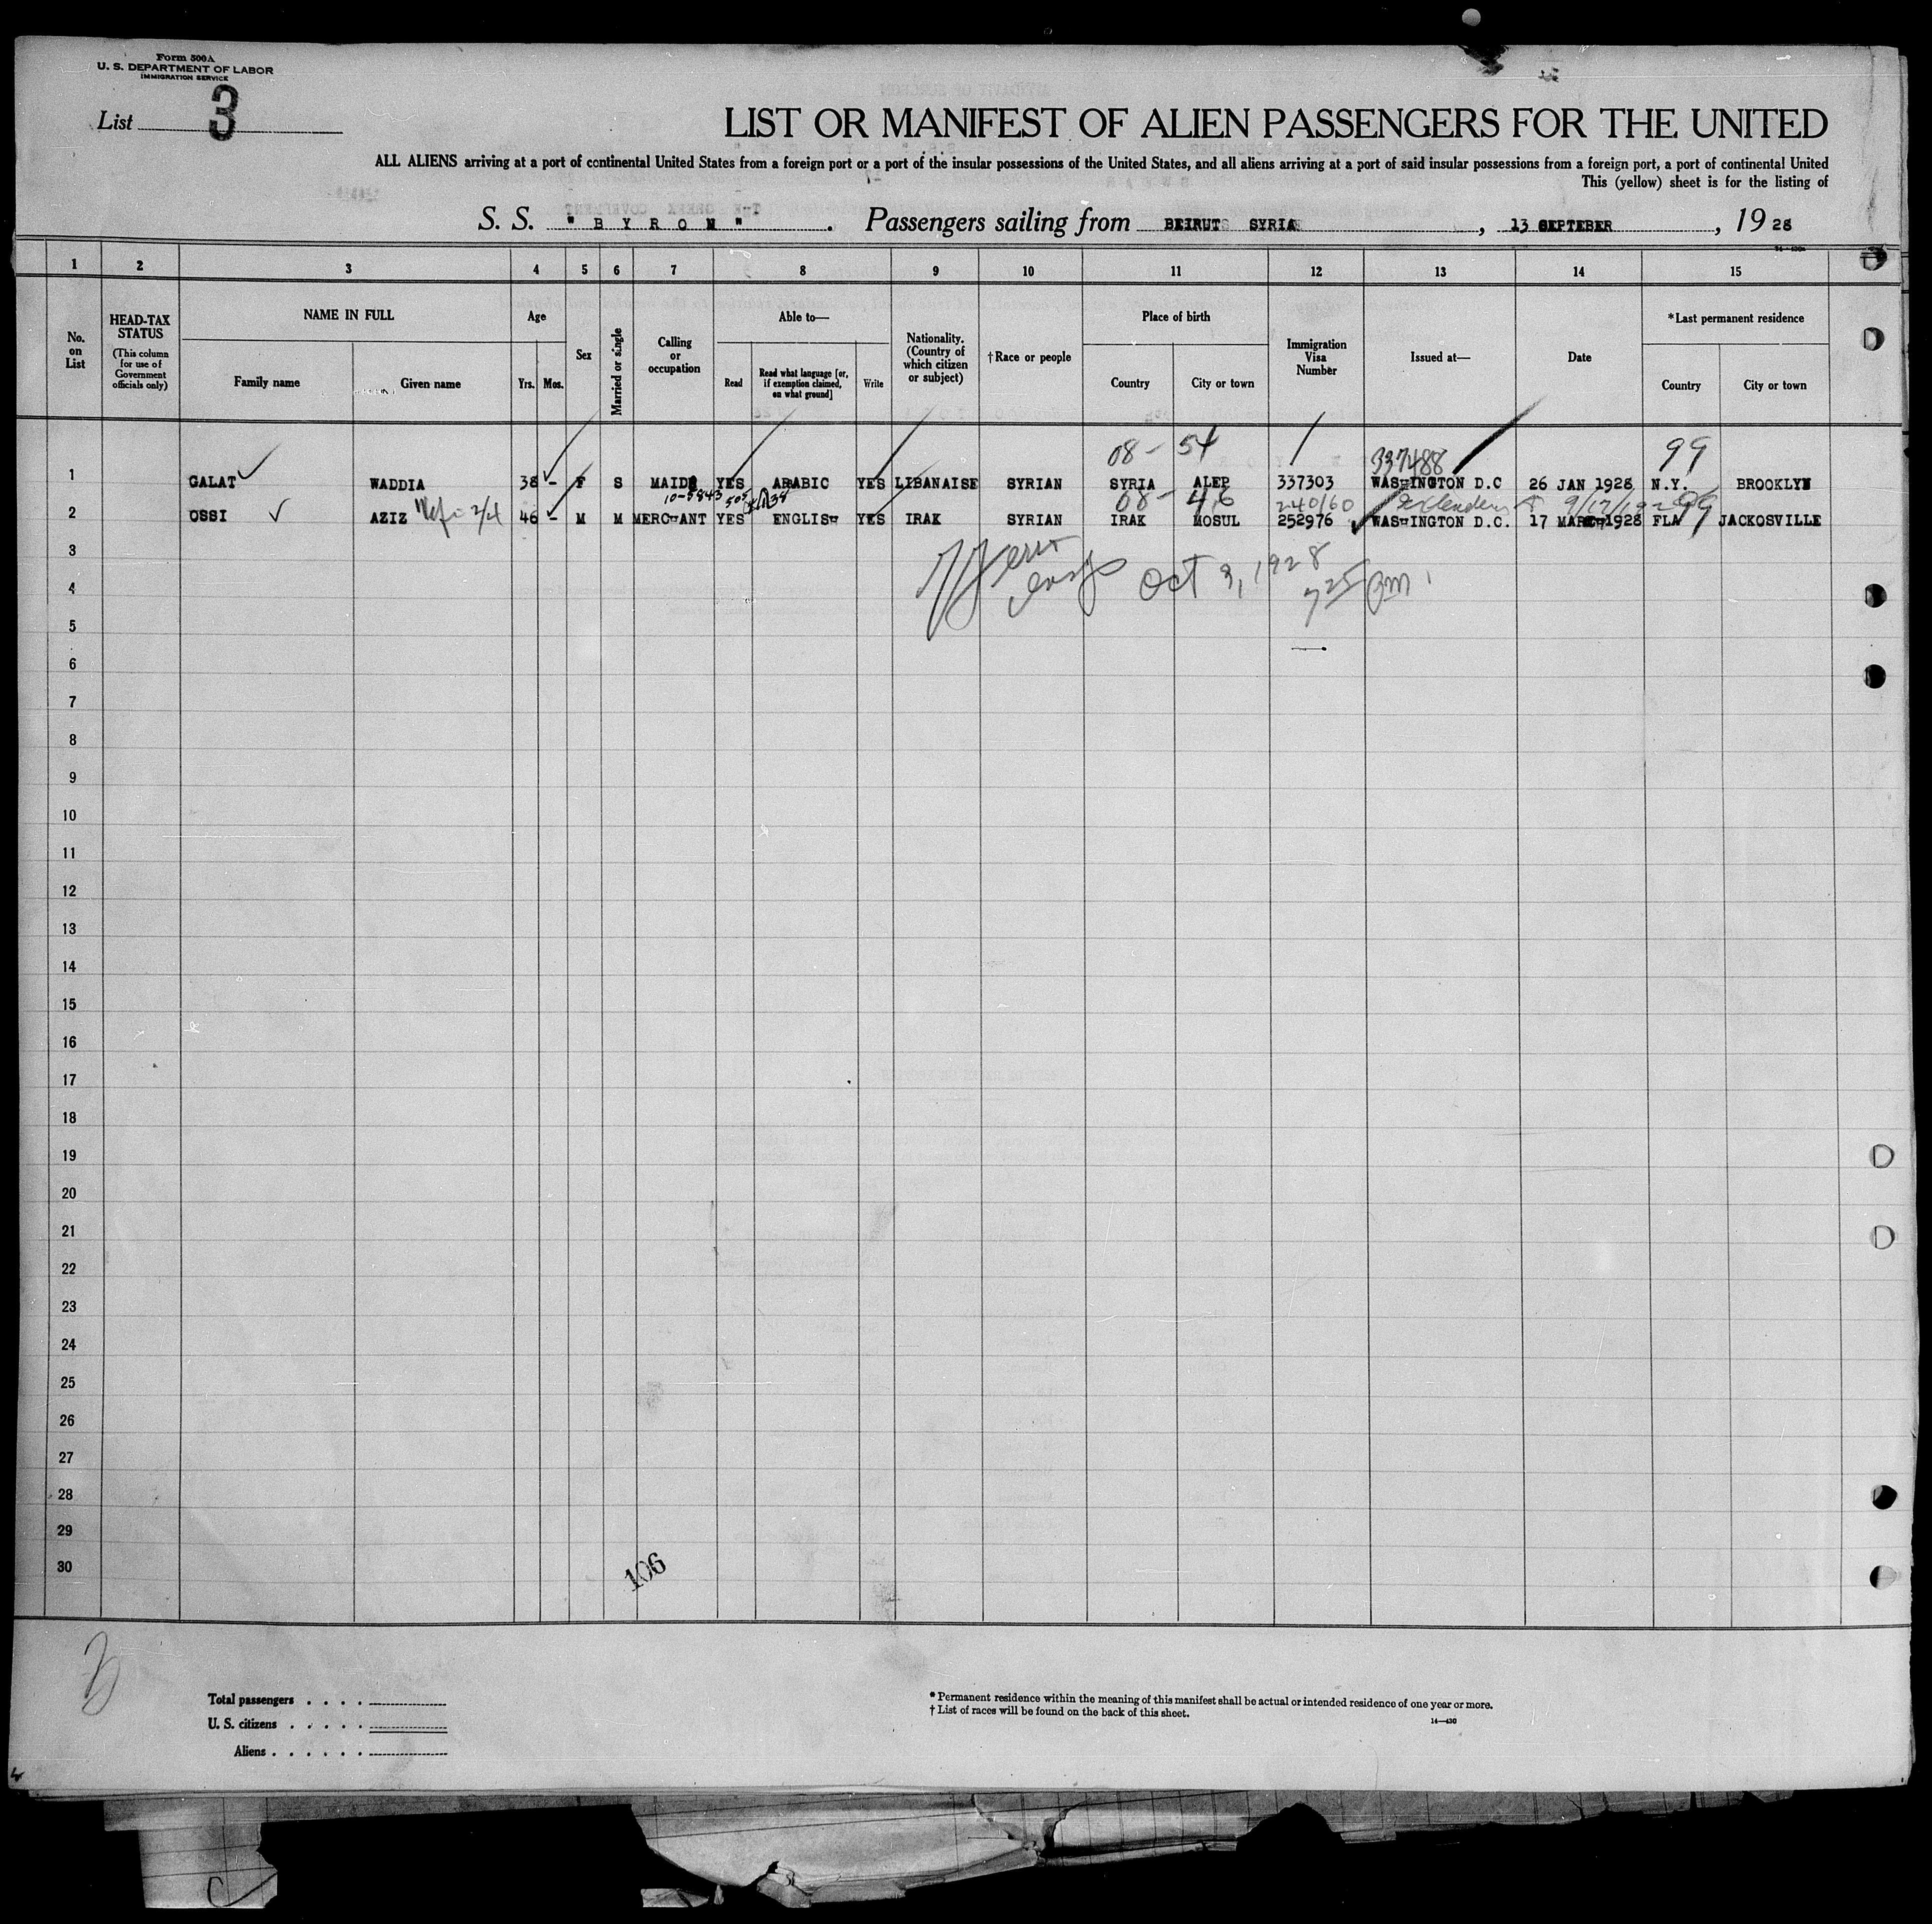 Form 500A
U. S. DEPARTMENT OF LABOR
IMMIGRATION SERVICE
List 3
LIST OR MANIFEST OF ALIEN PASSENGERS FOR THE UNITED
ALL ALIENS arriving at a port of continental United States from a foreign port or a port of the insular possessions of the United States, and all aliens arriving at a port of said insular possessions from a foreign port, a port of continental United
This (yellow) sheet is for the listing of
S. S. " B Y R O N ". Passengers sailing from BEIRUT SYRIA, 13 SEPTEBER, 19 28
1 2 3 4 5 6 7 8 9 10 11 12 13 14 15
No. on List
HEAD-TAX STATUS
(This column for use of Government officials only)
NAME IN FULL
Family name
Given name
Age
Yrs.
Mos.
Sex
Married or single
Calling or occupation
Able to—
Read
Read what language [or, if exemption claimed, on what ground]
Write
Nationality. (Country of which citizen or subject)
†Race or people
Place of birth
Country
City or town
Immigration Visa Number
Issued at—
Date
*Last permanent residence
Country
City or town
08 - 54 337488 99
1 GALAT WADDIA 38 - F S MAID YES ARABIC YES LIBANAISE SYRIAN SYRIA ALEP 337303 WASHINGTON D.C 26 JAN 1928 N.Y. BROOKLYN
10-5843 505 08 - 46 240160 9/17/1928 99
2 OSSI AZIZ 46 - M M MERCHANT YES ENGLISH YES IRAK SYRIAN IRAK MOSUL 252976 WASHINGTON D.C. 17 MARCH 1928 FLA JACKOSVILLE
3
Oct 3, 1928
4
7 25 pm
5
6
7
8
9
10
11
12
13
14
15
16
17
18
19
20
21
22
23
24
25
26
27
28
29
30
106
Total passengers . . . .
U. S. citizens . . . . .
Aliens . . . . . .
* Permanent residence within the meaning of this manifest shall be actual or intended residence of one year or more.
† List of races will be found on the back of this sheet.
14—430